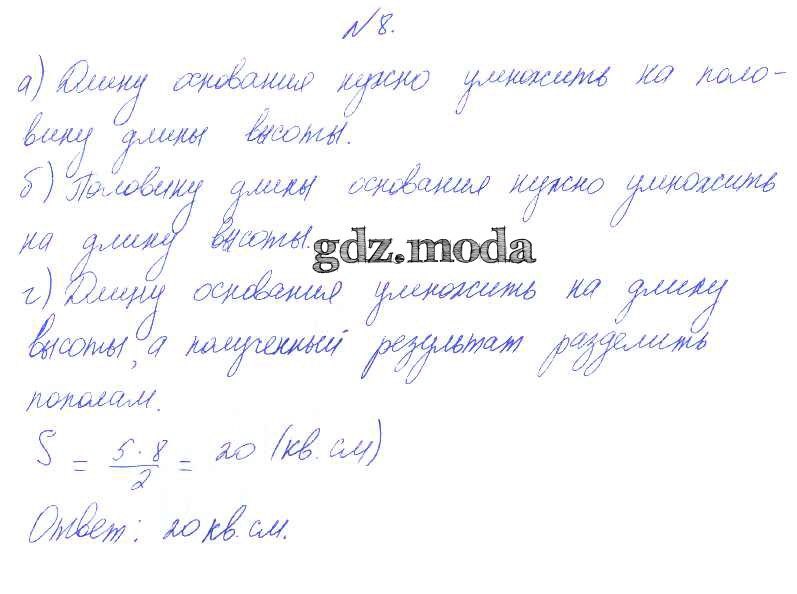 № 8.
а) Длину основания нужно умножить на поло-
вину длины высоты.
б) Половину длины основания нужно умножить
на длину высоты.
gdz.moda
г) Длину основания умножить на длину
высоты, а полученный результат разделить
пополам.
S = 5·8/2 = 20 (кв. см)
Ответ: 20 кв. см.